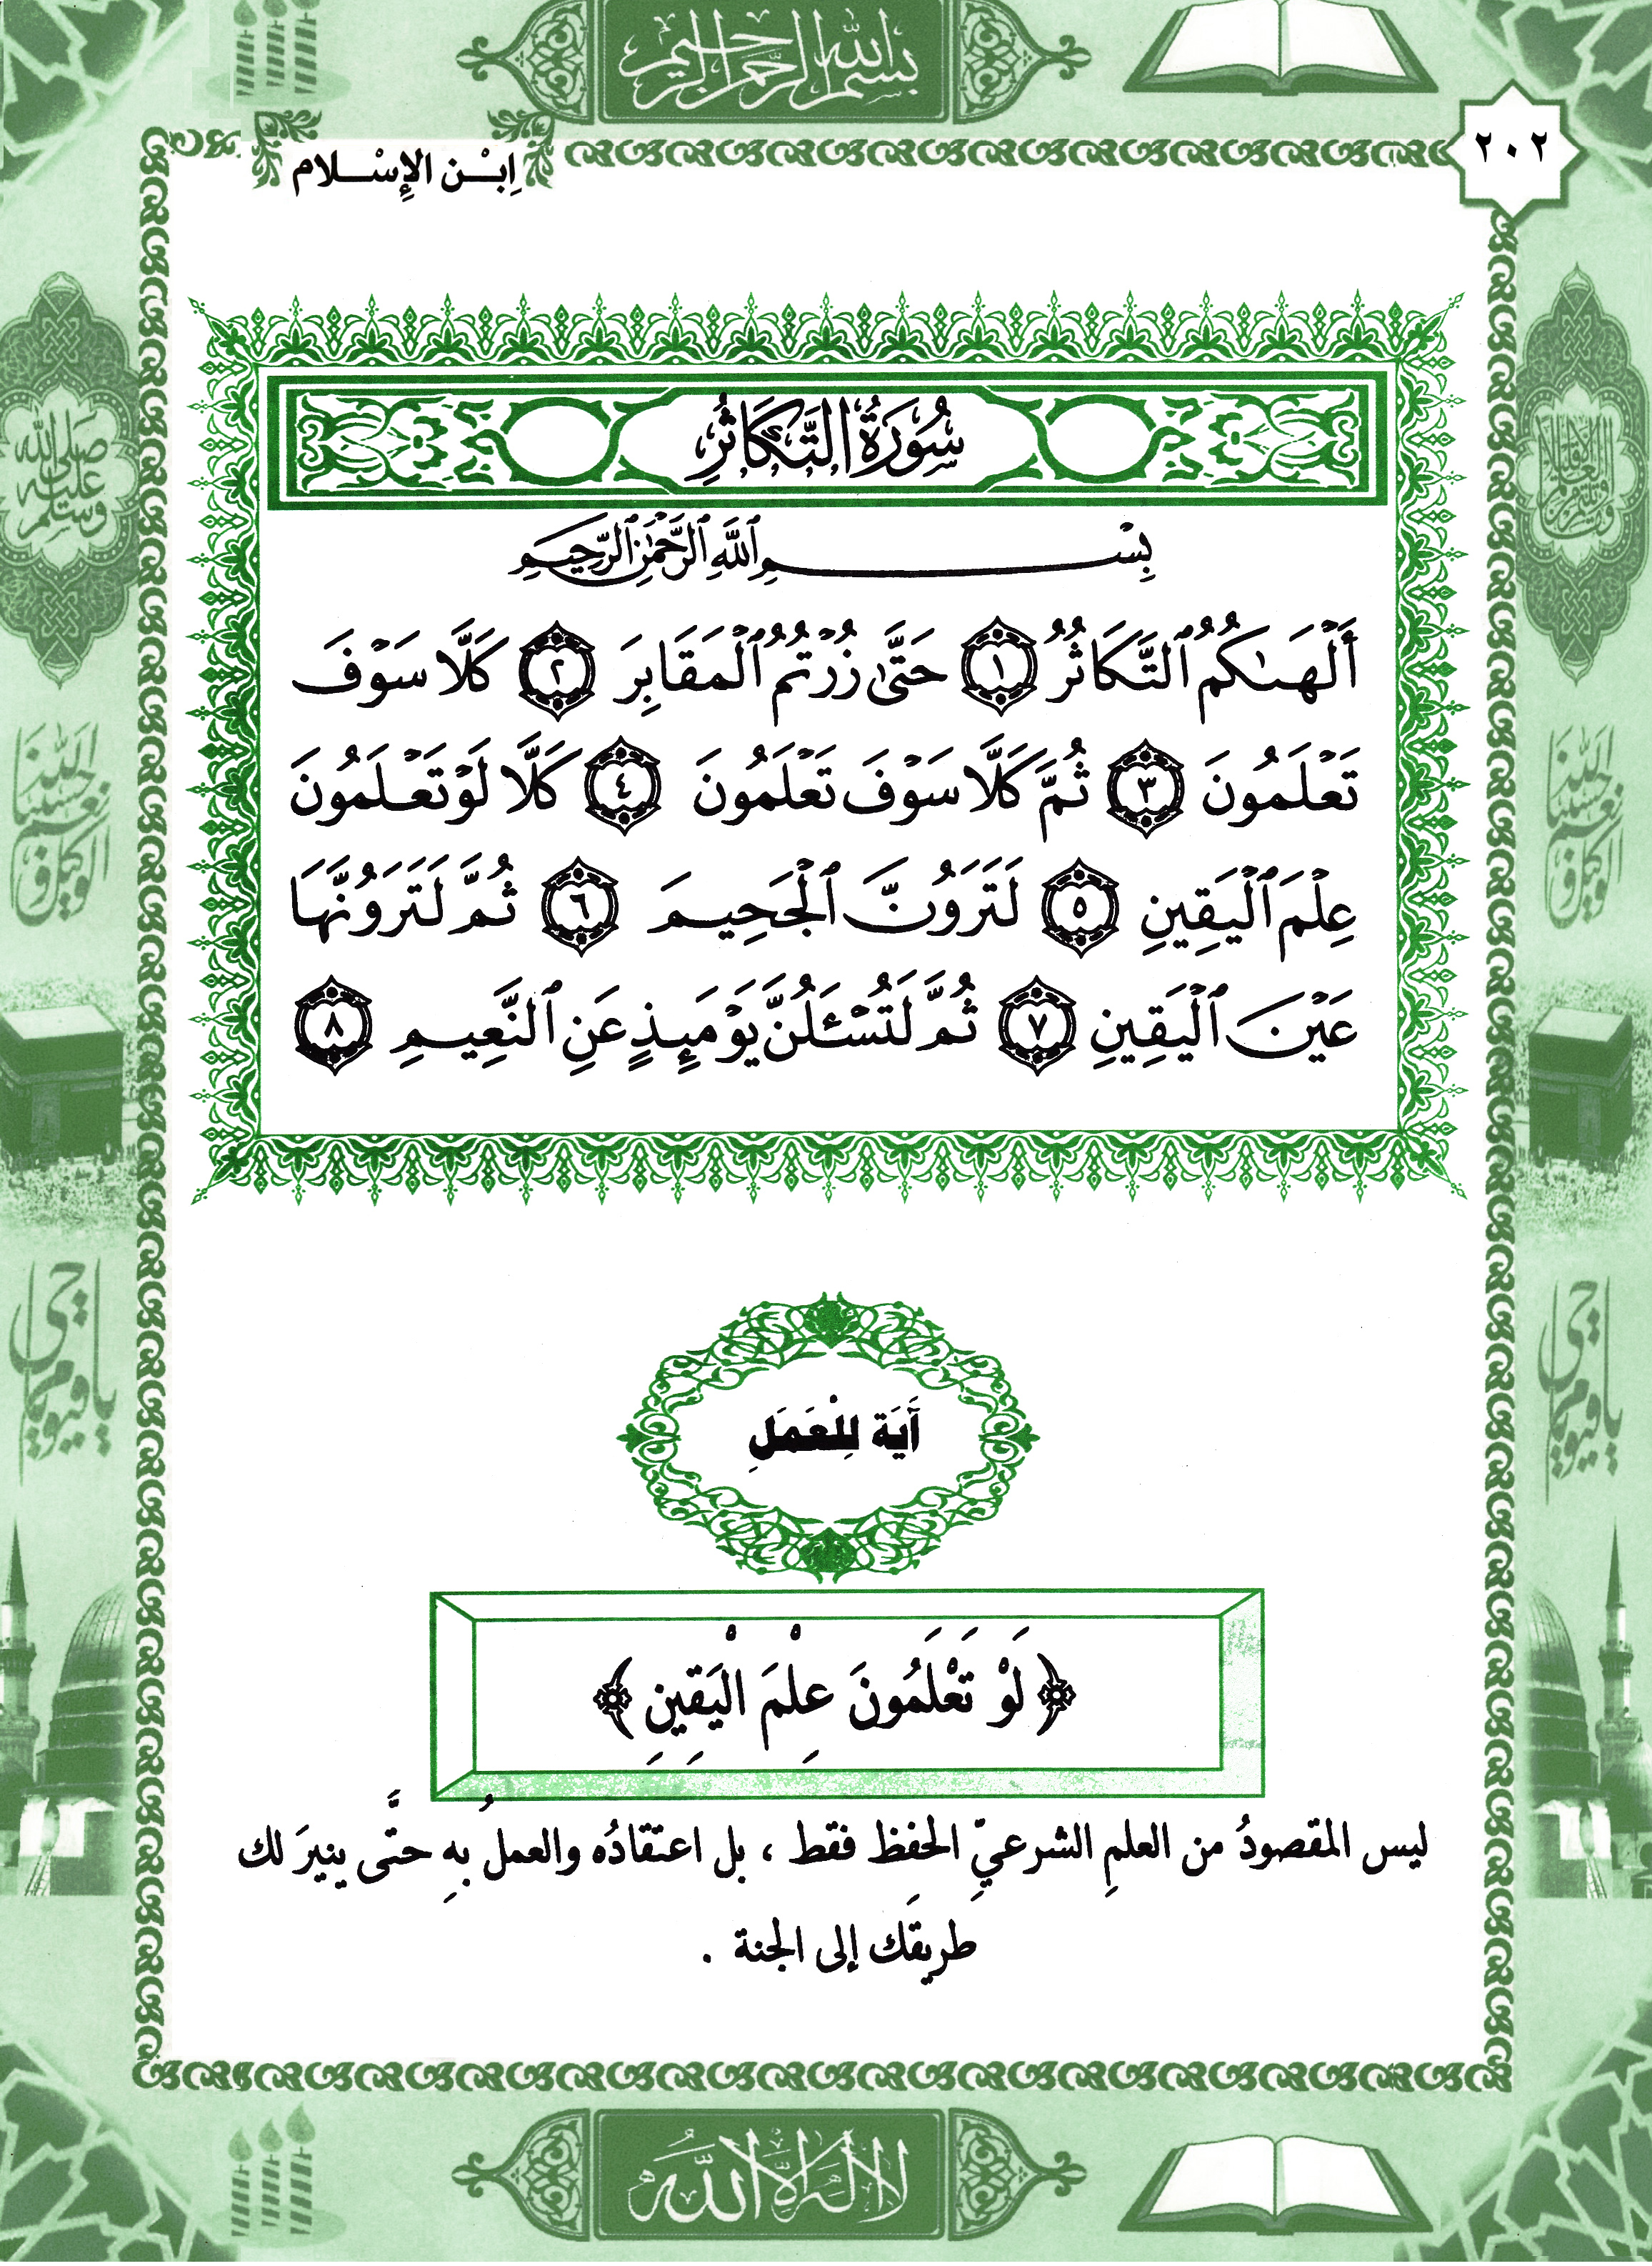 بسم الله الرحمن الرحيم
٢٠٢
اِبْـن الإِسْـلام
سُورَةُ التَّكَاثُرِ
بِسْمِ ٱللَّهِ ٱلرَّحْمَٰنِ ٱلرَّحِيمِ
أَلْهَىٰكُمُ ٱلتَّكَاثُرُ ١ حَتَّىٰ زُرْتُمُ ٱلْمَقَابِرَ ٢ كَلَّا سَوْفَ
تَعْلَمُونَ ٣ ثُمَّ كَلَّا سَوْفَ تَعْلَمُونَ ٤ كَلَّا لَوْ تَعْلَمُونَ
عِلْمَ ٱلْيَقِينِ ٥ لَتَرَوُنَّ ٱلْجَحِيمَ ٦ ثُمَّ لَتَرَوُنَّهَا
عَيْنَ ٱلْيَقِينِ ٧ ثُمَّ لَتُسْـَٔلُنَّ يَوْمَئِذٍ عَنِ ٱلنَّعِيمِ ٨
آيَة لِلْعَمَلِ
﴿ لَوْ تَعْلَمُونَ عِلْمَ الْيَقِينِ ﴾
ليس المقصودُ من العلمِ الشرعيِّ الحفِظ فقط ، بل اعتقادُه والعملُ بِهِ حتَّى ينيرَ لك
طريقَك إلى الجنة .
صلى الله عليه وسلم
حسبنا الله ونعم الوكيل
حسبنا الله ونعم الوكيل
يا حي يا قيوم
يا حي يا قيوم
لا إله إلا الله